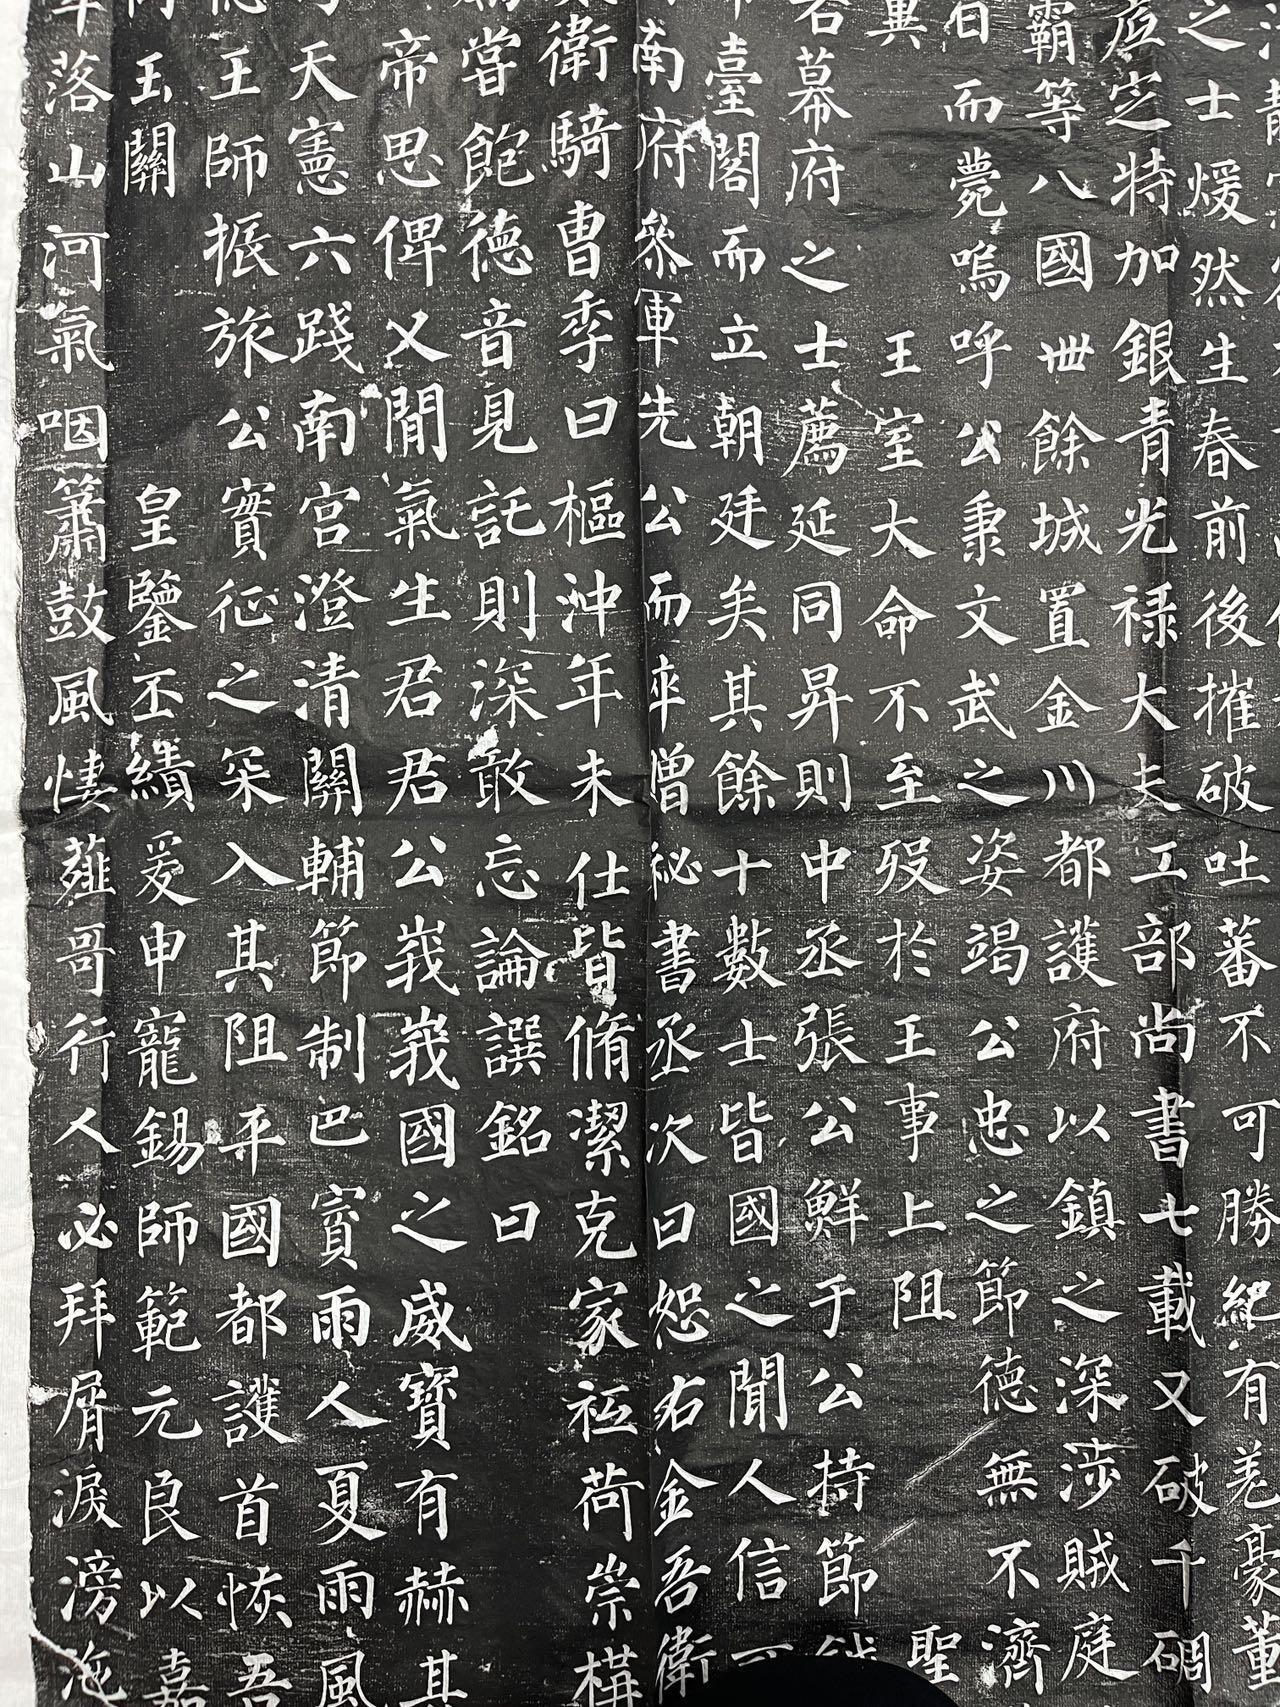 之士煖然生春前後摧破吐蕃不可勝紀有羌豪董
定特加銀青光禄大夫工部尚書七載又破千碉
霸等八國卌餘城置金川都護府以鎮之深涉賊庭
日而薨嗚呼公秉文武之姿竭公忠之節德無不濟
異王室大命不至歿於王事上阻聖
若幕府之士薦延同昇則中丞張公鮮于公持節
臺閣而立朝廷矣其餘十數士皆國之聞人信可
南府參軍先公而卒僧祕書丞次曰恕右金吾衛
衛騎曹季曰樞沖年未仕皆脩潔克家祗荷崇構
嘗飽德音見託則深敢忘論譔銘曰
帝思俾乂間氣生君君公峩峩國之威寶有赫其
天憲六踐南宮澄清關輔節制巴賨雨人夏雨風
王師振旅公實征之罙入其阻平國都護首恢吾
玉關皇鑒丕績爰申寵錫師範元良以嘉
落山河氣咽簫鼓風悽薤哥行人必拜屑淚滂沲